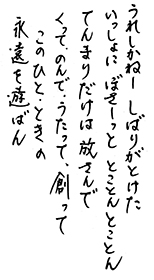 うれしかねー しばりがとけた
いっしょに ぼさーっと とことんとことん
てんまりだけは放さんで
くって、のんで、うたって、創って
このひと・ときの
永遠を遊ばん